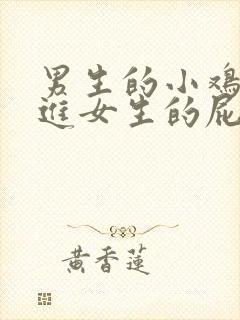 男生的小鸡
进女生的屁
黄香莲